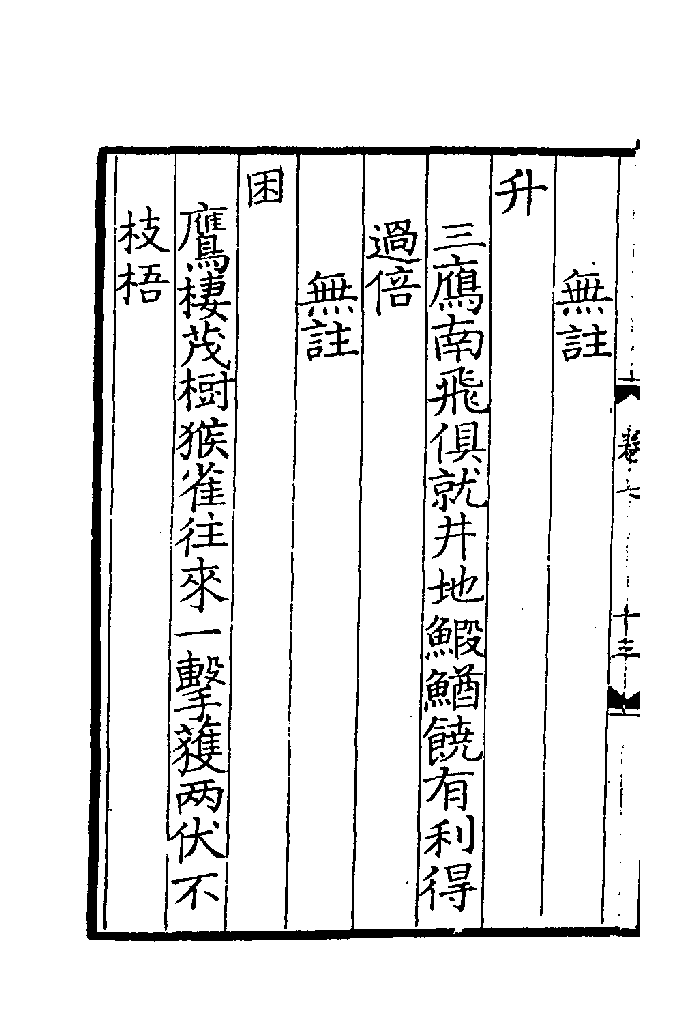 十三
無註
升
三鴈南飛俱就井地鰕鰌饒有利得
過倍
無註
困
鷹棲茂樹猴雀往來一擊獲两伏不
枝梧